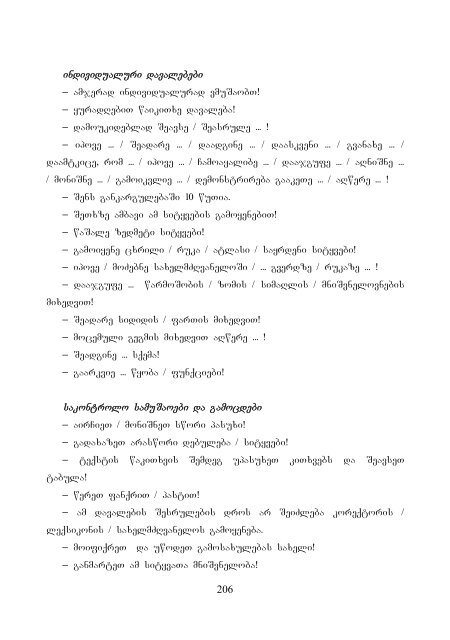 ინდივიდუალური დავალებები
– ამჯერად ინდივიდუალურად ვმუშაობთ!
– ყურადღებით წაიკითხე დავალება!
– დამოუკიდებლად შეავსე / შეასრულე ... !
– იპოვე ... / შეადარე ... / დაადგინე ... / დაასკვენი ... / გვანახე ... /
დაამტკიცე, რომ ... / იპოვე ... / ჩამოაყალიბე ... / დააჯგუფე ... / აღნიშნე ...
/ მონიშნე ... / გამოიკვლიე ... / დემონსტრირება გააკეთე ... / აღწერე ... !
– შენს განკარგულებაში 10 წუთია.
– შეთხზე ამბავი ამ სიტყვების გამოყენებით!
– წაშალე ზედმეტი სიტყვები!
– გამოიყენე ცხრილი / რუკა / ატლასი / საყრდენი სიტყვები!
– იპოვე / მოძებნე სახელმძღვანელოში / ... გვერდზე / რუკაზე ... !
– დააჯგუფე ... წარმოშობის / ზომის / სიმაღლის / მნიშვნელოვნების
მიხედვით!
– შეადარე სიდიდის / ფართის მიხედვით!
– მოცემული გეგმის მიხედვით აღწერე ... !
– შეადგინე ... სქემა!
– გაარკვიე ... წყობა / ფუნქციები!
საკონტროლო სამუშაოები და გამოცდები
– აირჩიეთ / მონიშნეთ სწორი პასუხი!
– გადახაზეთ არასწორი დებულება / სიტყვები!
– ტექსტის წაკითხვის შემდეგ უპასუხეთ კითხვებს და შეავსეთ
ტაბულა!
– წერეთ ფანქრით / პასტით!
– ამ დავალების შესრულების დროს არ შეიძლება კორექტორის /
ლექსიკონის / სახელმძღვანელოს გამოყენება.
– მოიფიქრეთ და უწოდეთ გამოსახულებას სახელი!
– განმარტეთ ამ სიტყვათა მნიშვნელობა!
206